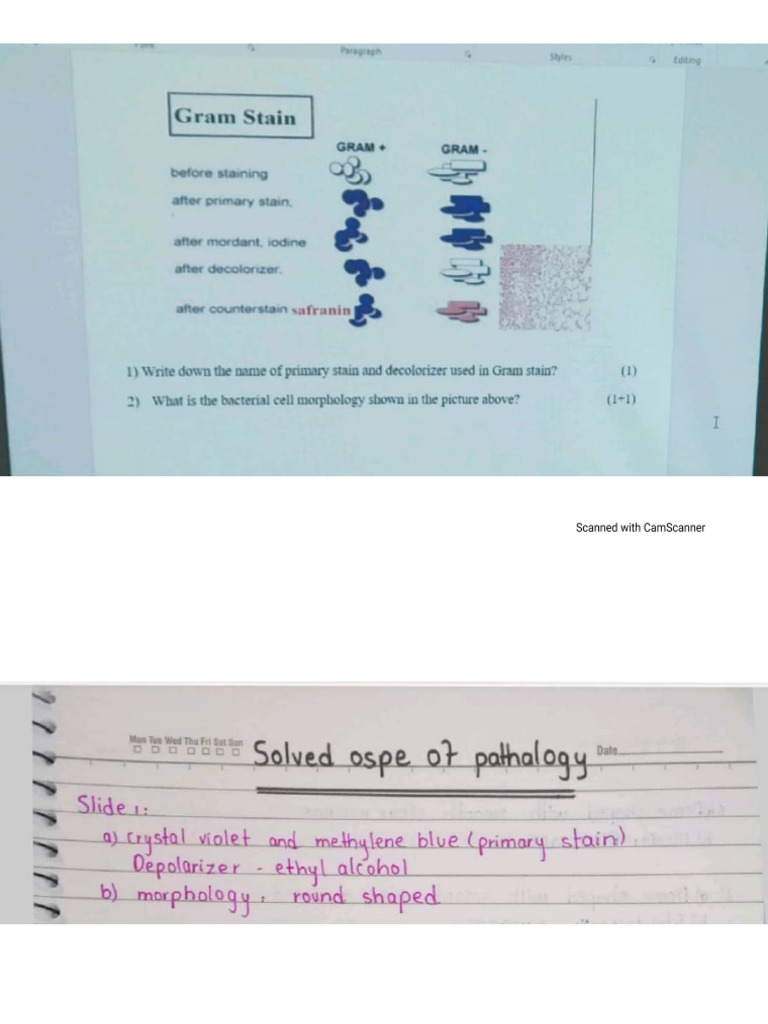 Paragraph
Styles
Editing
Gram Stain
GRAM + GRAM -
before staining
after primary stain,
after mordant, iodine
after decolorizer.
after counterstain safranin
1) Write down the name of primary stain and decolorizer used in Gram stain? (1)
2) What is the bacterial cell morphology shown in the picture above? (1+1)
Scanned with CamScanner
Mon Tus Wed Thu Fri Sat Sun
Date
Solved ospe of pathalogy
Slide 1:
a) crystal violet and methylene blue (primary stain)
Depolarizer - ethyl alcohol
b) morphology: round shaped